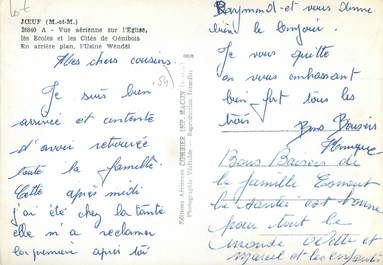 Lot
JŒUF (M.-et-M.)
26840 A - Vue aérienne sur l'Eglise,
les Ecoles et les Cités de Génibois
En arrière plan, l'Usine Wendel
Mes chers cousins.
Je suis bien
arrivée et contente
d'avoir retrouvée
toute la famille.
Cette après midi
j'ai été chez la tante
elle m'a reclamer
la première après toi
Editions Aériennes COMBIER IMP. MACON
Photographie Véritable - Reproduction Interdite
Raymond et vous donne
bien le bonjour.
Je vous quitte
en vous embrassant
bien fort tous les
trois
Bons Baisers
Bons Baisers de
la famille
la santé est bonne
pour tout le
monde Odette et
Marcel et les enfants